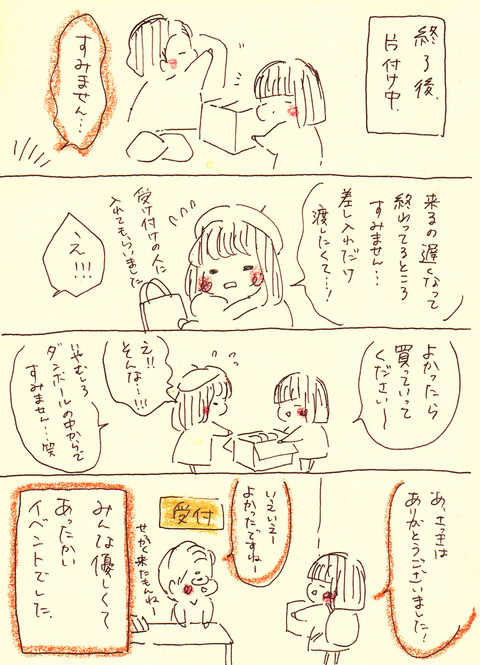 終了後、
片付け中、
すみません…
来るの遅くなって
終わってるところ
すみません…
差し入れだけ
渡したくて…!
受け付けの人に
入れてもらいました
え!!!
よかったら
買っていって
ください〜
え!!
そんな…!!!
いやむしろ
ダンボールの中からで
すみません…笑
あ、さっきは
ありがとうございました!
いえいえー
よかったですねー
受付
せっかく来たもんねー
みんな優しくて
あったかい
イベントでした、